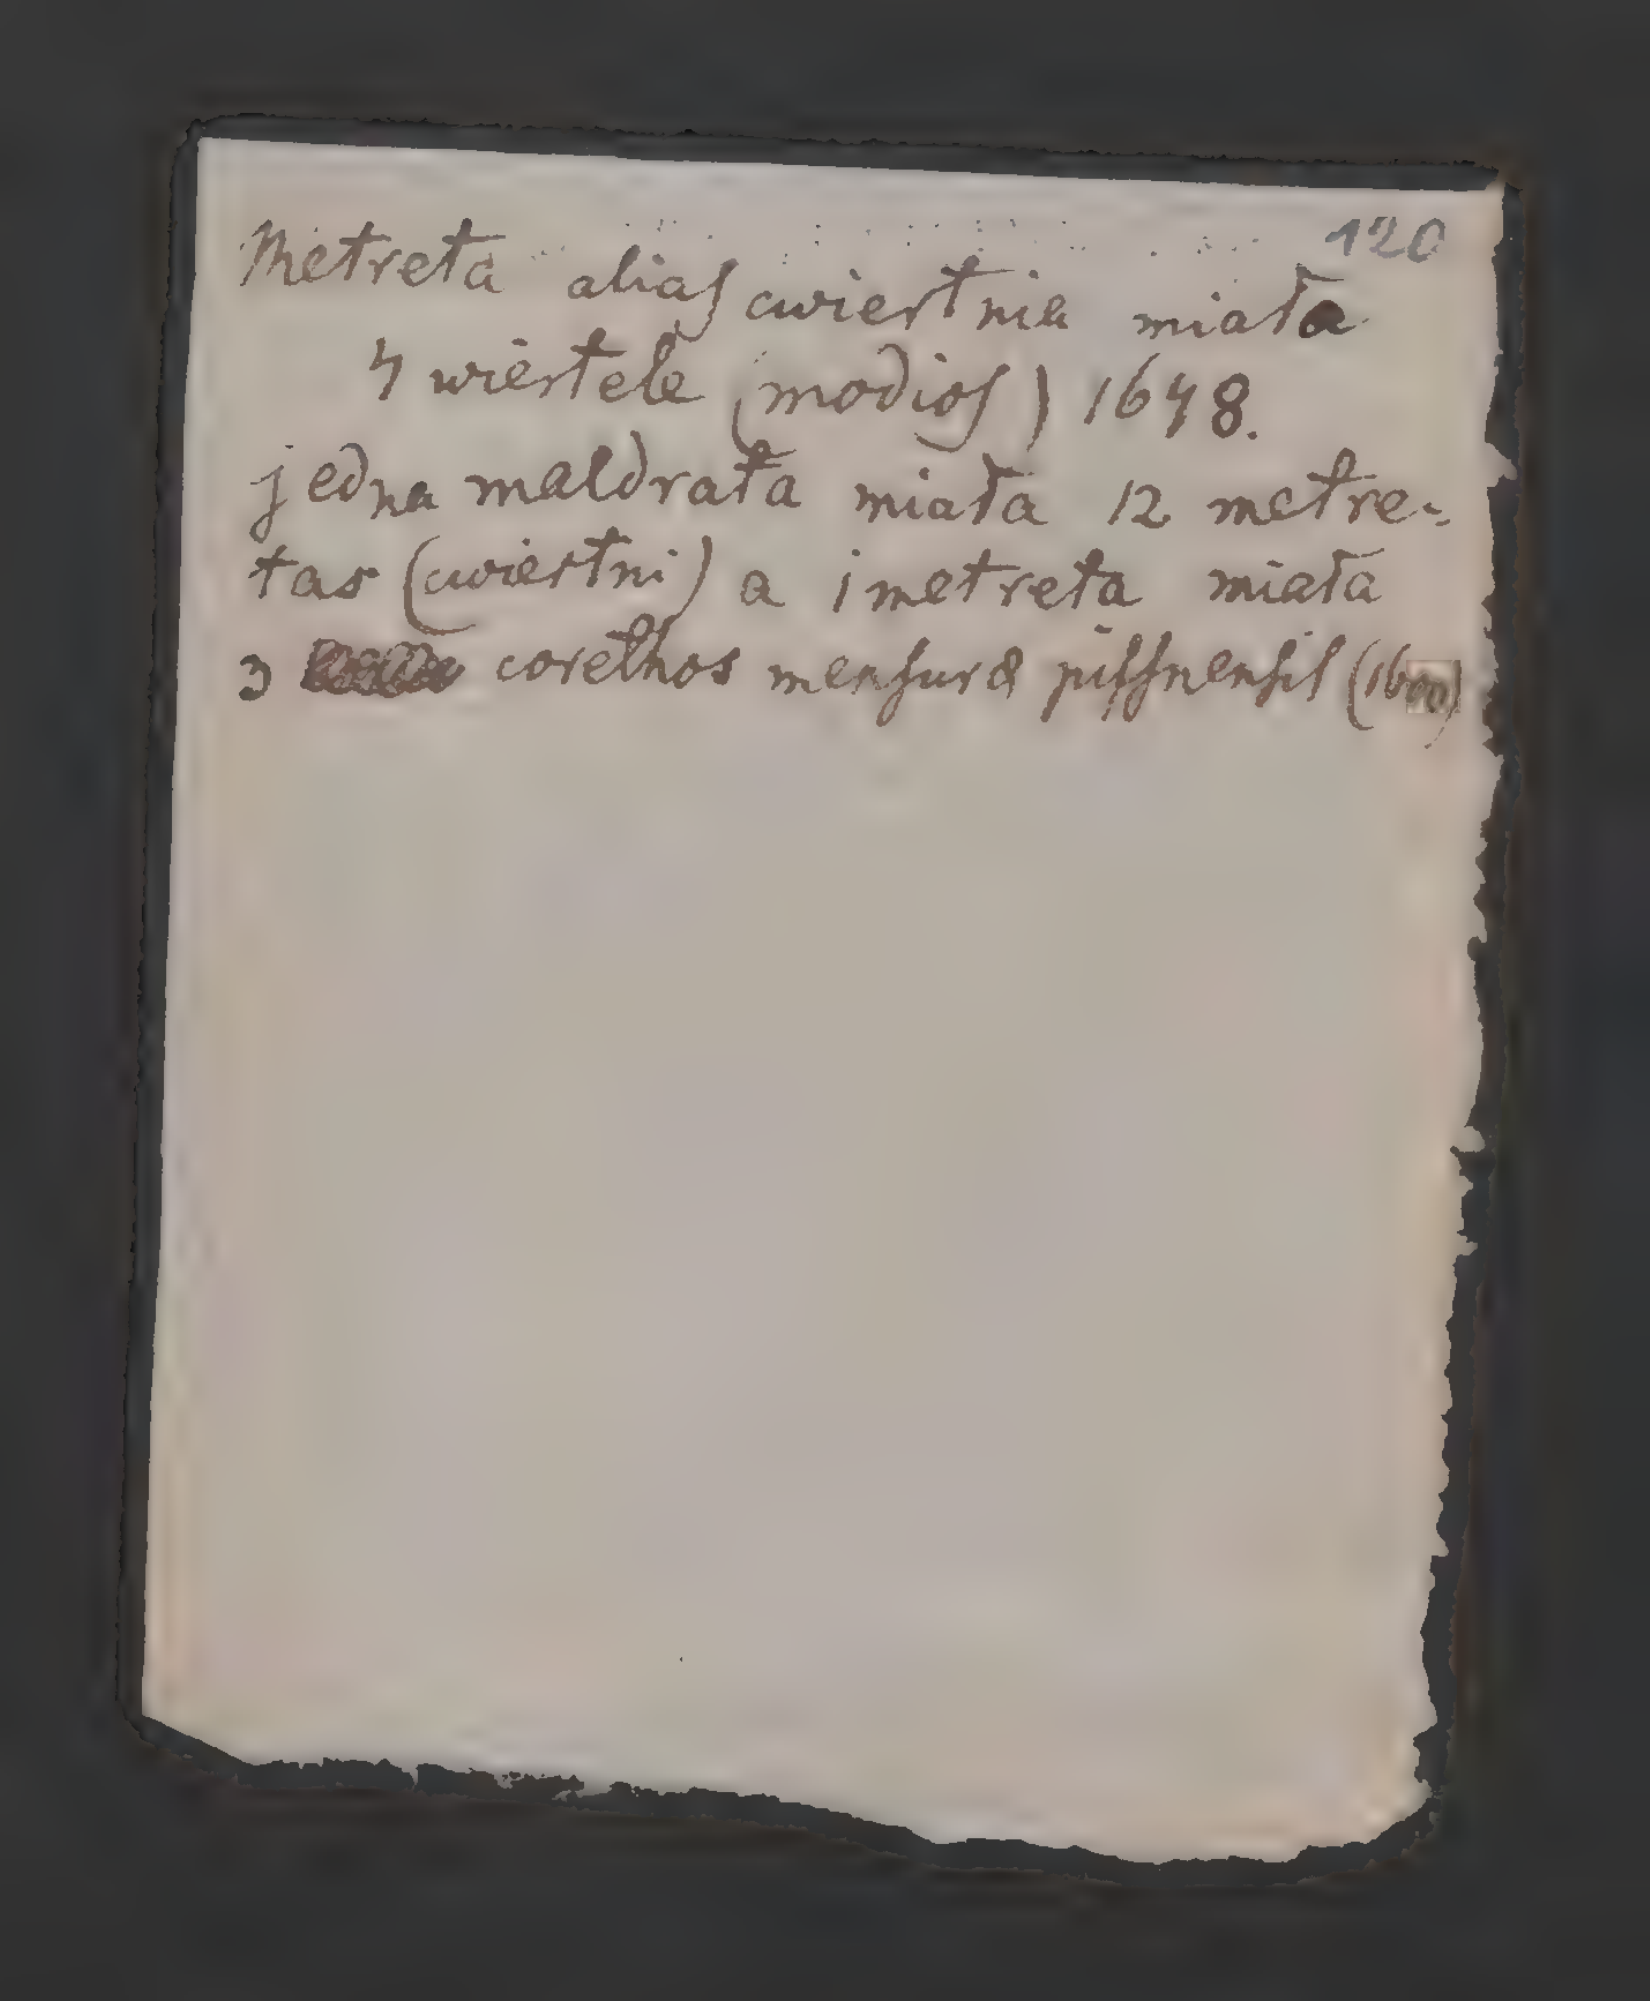 120
Metreta alias cwiertnia miała
4 wiertele (modios) 1648.
jedna maldrata miała 12 metre-
tas (cwiertni) a 1 metreta miała
3 corethos mensurae pissnensis